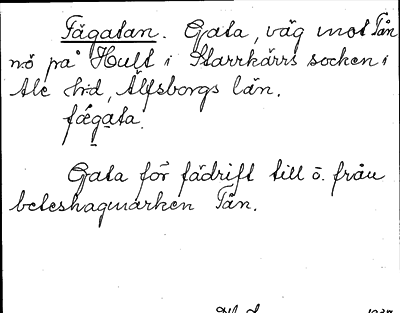 Fägatan. Gata, väg mot Tån
nö på Hult i Starrkärrs socken i
Ale hd, Älfsborgs län.
fǽgata.
Gata för fädrift till o. från
beteshagmarken Tån.